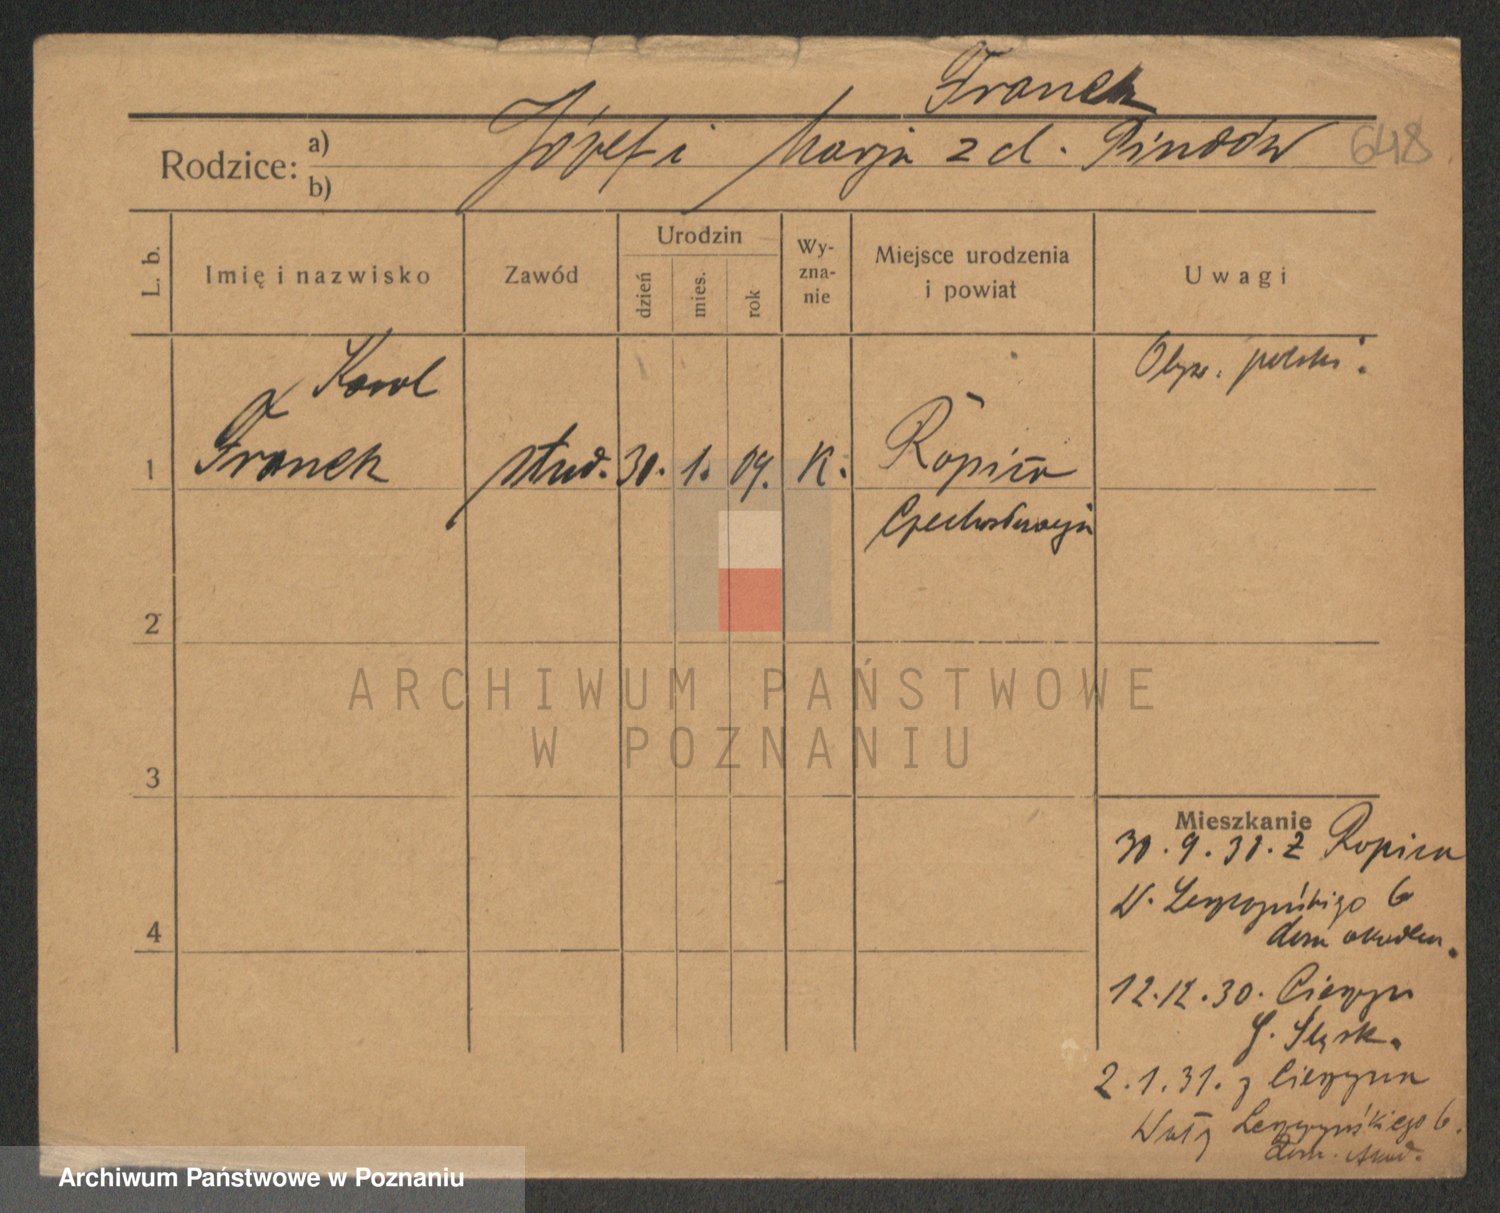 Franek
Rodzice: a) b) Józef i Marja z d. Pindór 648
L. b. Imię i nazwisko Zawód Urodzin dzień mies. rok Wy-zna-nie Miejsce urodzenia i powiat Uwagi
Karol
Obyw. polski.
1 Franek stud. 30. 1. 09. K. Ropica
Czechosłowacja
2
ARCHIWUM PAŃSTWOWE
W POZNANIU
3
Mieszkanie
30.9.30. z Ropica
W. Leszczyńskiego 6
dom akadem.
4
12.12.30. Cieszyn
G. Śląsk.
2.1.31. z Cieszyna
Wały Leszczyńskiego 6.
Dom. Akad.
Archiwum Państwowe w Poznaniu